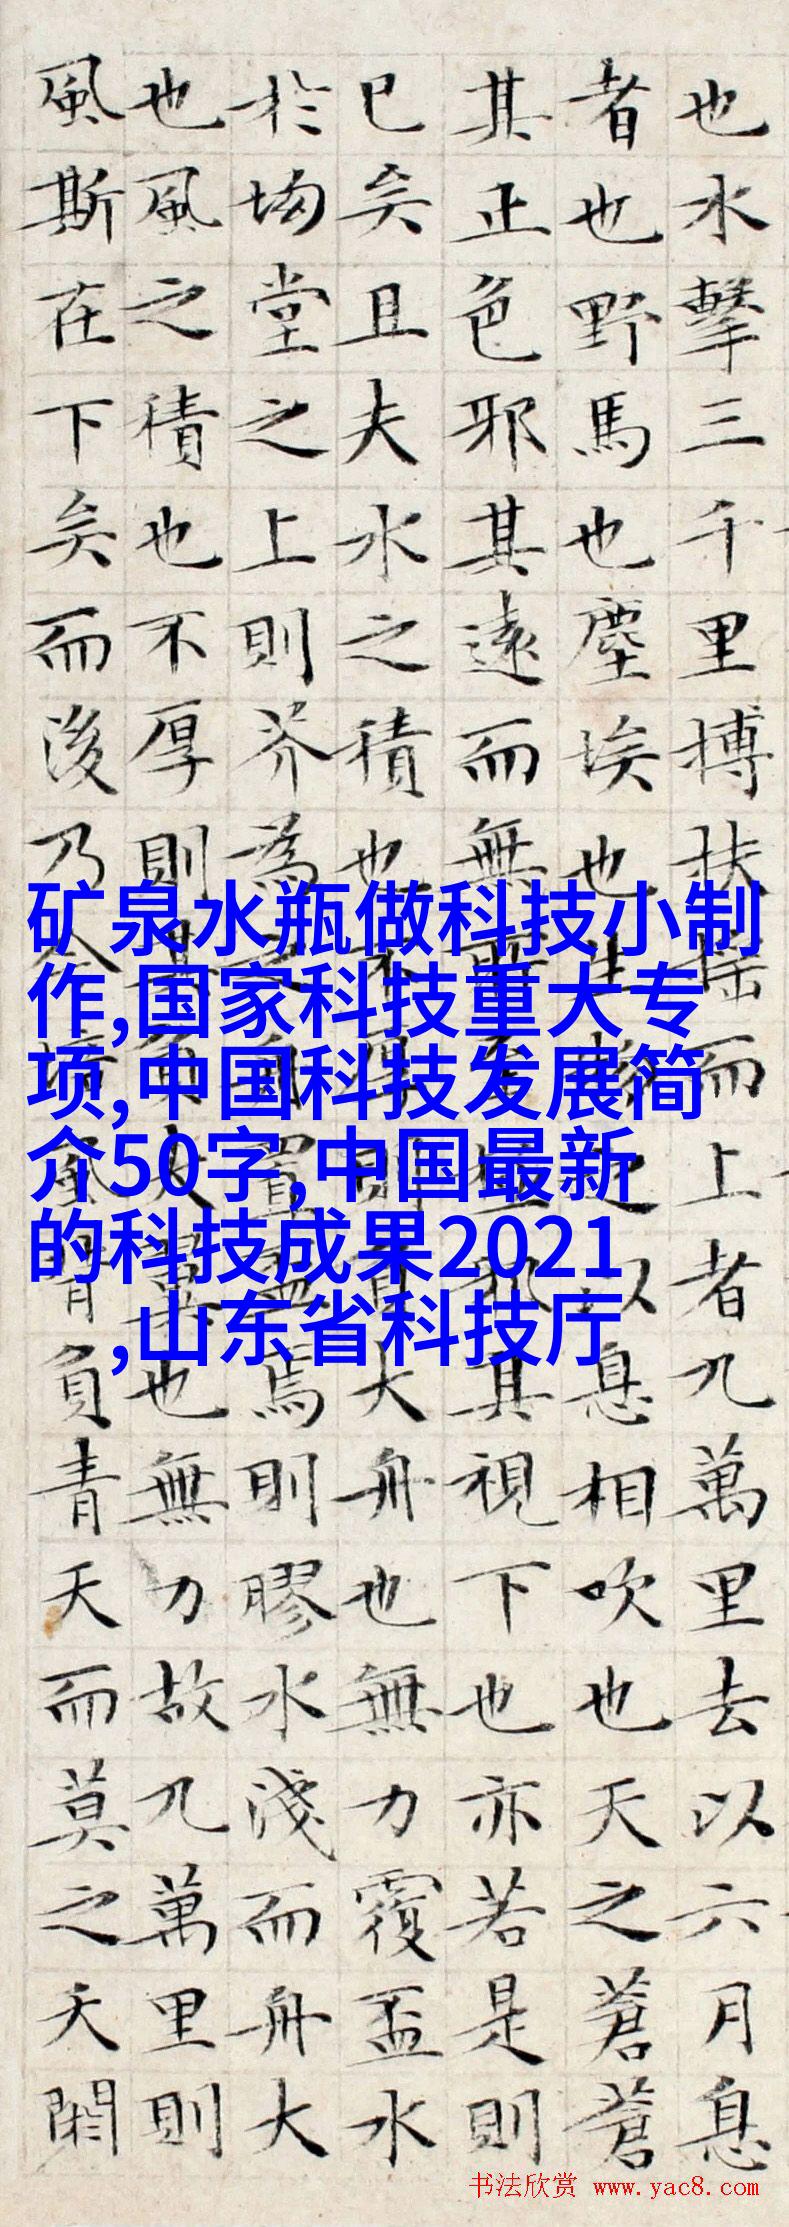 也水擊三千里搏扶搖而上者九萬里去以六月息
者也野馬也塵埃也生物之以息相吹也天之蒼蒼
其正色邪其遠而無所至極邪其視下也亦若是則
已矣且夫水之積也不厚則負大舟也無力覆盃水
於坳堂之上則芥為之舟置盃焉則膠水淺而舟大
也風之積也不厚則其負大翼也無力故九萬里則
風斯在下矣而後乃今培風背負青天而莫之夭閼
矿泉水瓶做科技小制
作,国家科技重大专
项,中国科技发展简
介50字,中国最新
的科技成果2021
,山东省科技厅
书法欣赏 www.yac8.com